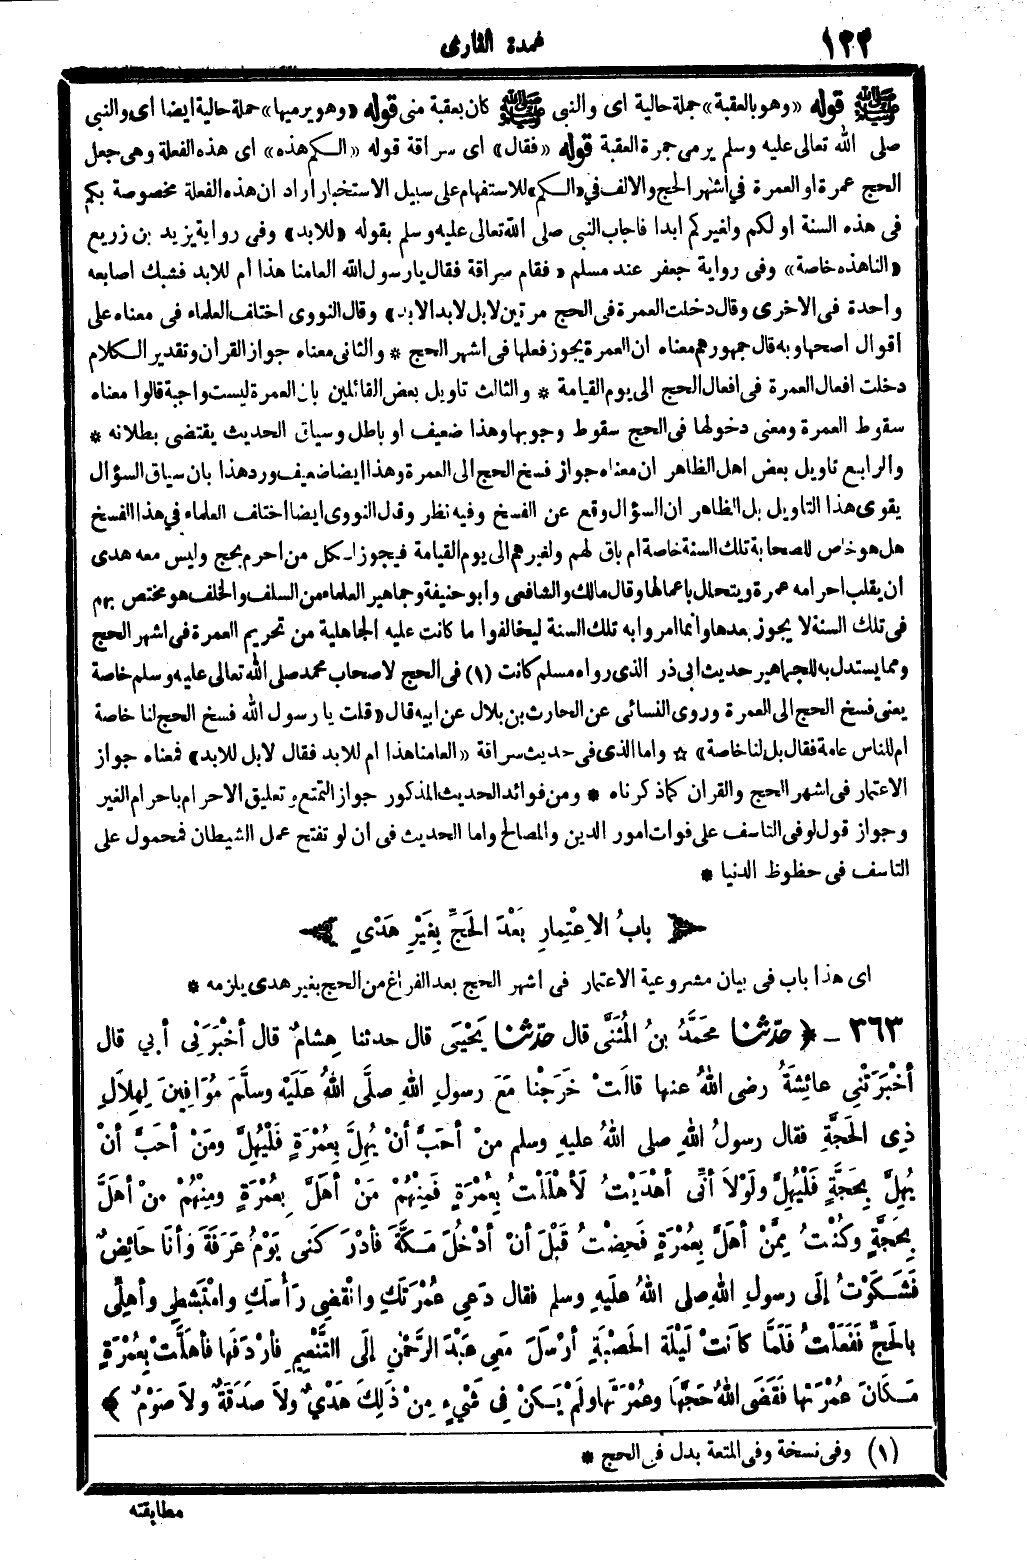 ١٢٢ عمدة القارى
ﷺ قوله «وهو بالعقبة» جملة حالية اى والنبى ﷺ كان بعقبة منى قوله «وهو يرميها» جملة حالية ايضا اى والنبى
صلى الله تعالى عليه وسلم يرمى جمرة العقبة قوله «فقال» اى سراقة قوله «الكم هذه» اى هذه الفعلة وهى جعل
الحج عمرة او العمرة في اشهر الحج والالف في «الكم» للاستفهام على سبيل الاستخبار اراد ان هذه الفعلة مخصوصة بكم
فى هذه السنة او لكم ولغيركم ابدا فاجاب النبى صلى الله تعالى عليه وسلم بقوله «للابد» وفى رواية يزيد بن زريع
«النا هذه خاصة» وفى رواية جعفر عند مسلم «فقام سراقة فقال يا رسول الله العامنا هذا ام للابد فشبك اصابعه
واحدة فى الاخرى وقال دخلت العمرة فى الحج مرتين لا بل لابد الابد» وقال النووى اختلف العلماء فى معناه على
اقوال اصحها وبه قال جمهورهم معناه ان العمرة يجوز فعلها فى اشهر الحج * والثانى معناه جواز القران وتقدير الكلام
دخلت افعال العمرة فى افعال الحج الى يوم القيامة * والثالث تاويل بعض القائلين بان العمرة ليست واجبة قالوا معناه
سقوط العمرة ومعنى دخولها فى الحج سقوط وجوبها وهذا ضعيف او باطل وسياق الحديث يقتضى بطلانه *
والرابع تاويل بعض اهل الظاهر ان معناه جواز فسخ الحج الى العمرة وهذا ايضا ضعيف ورد هذا بان سياق السؤال
يقوى هذا التاويل بل الظاهر ان السؤال وقع عن الفسخ وفيه نظر وقال النووى ايضا اختلف العلماء في هذا الفسخ
هل هو خاص للصحابة تلك السنة خاصة ام باق لهم ولغيرهم الى يوم القيامة فيجوز لكل من احرم بحج وليس معه هدى
ان يقلب احرامه عمرة ويتحلل باعمالها وقال مالك والشافعى وابو حنيفة وجماهير العلماء من السلف والخلف هو مختص بهم
فى تلك السنة لا يجوز بعدها وانما امروا به تلك السنة ليخالفوا ما كانت عليه الجاهلية من تحريم العمرة فى اشهر الحج
ومما يستدل به للجماهير حديث ابى ذر الذى رواه مسلم كانت (١) فى الحج لاصحاب محمد صلى الله تعالى عليه وسلم خاصة
يعنى فسخ الحج الى العمرة وروى النسائى عن الحارث بن بلال عن ابيه قال «قلت يا رسول الله فسخ الحج لنا خاصة
ام للناس عامة فقال بل لنا خاصة» ☆ واما الذى فى حديث سراقة «العامنا هذا ام للابد فقال لا بل للابد» فمعناه جواز
الاعتمار فى اشهر الحج والقران كما ذكرناه * ومن فوائد الحديث المذكور جواز التمتع وتعليق الاحرام باحرام الغير
وجواز قول لو فى التاسف على فوات امور الدين والمصالح واما الحديث فى ان لو تفتح عمل الشيطان فمحمول على
التاسف فى حظوظ الدنيا *
بابُ الاِعْتِمارِ بَعْدَ الحَجِّ بِغَيْرِ هَدْيٍ
اى هذا باب فى بيان مشروعية الاعتمار فى اشهر الحج بعد الفراغ من الحج بغير هدى يلزمه *
٣٦٣ ـ ﴿ حدّثنا محَمَّدُ بنُ المُثَنَّى قال حدّثنا يَحْيَى قال حدثنا هِشامٌ قال أخْبَرَنِى أبي قال
أخْبَرَتْنِى عائِشَةُ رضى اللهُ عنها قالَتْ خَرَجْنا مَعَ رسولِ اللهِ صلَّى اللهُ عَلَيْهِ وسلَّمَ مُوَافِينَ لِهِلاَلِ
ذِى الحَجَّةِ فقال رسولُ اللهِ صلى اللهُ عليهِ وسلم منْ أحَبَّ أنْ يُهِلَّ بِعُمْرَةٍ فَلْيُهِلَّ ومَنْ أحَبَّ أنْ
يُهِلَّ بِحَجَّةٍ فَلْيُهِلَّ ولَوْلاَ أنِّى أهْدَيْتُ لَأهْلَلْتُ بِعُمْرَةٍ فَمِنْهُمْ مَنْ أهَلَّ بِعُمْرَةٍ ومِنْهُمْ مِنْ أهَلَّ
بِحَجَّةٍ وكُنْتُ مِمَّنْ أهَلَّ بِعُمْرَةٍ فَحِضْتُ قَبْلَ أنْ أدْخُلَ مَكَّةَ فأدْرَكَنى يَوْمُ عَرَفَةَ وأنَا حائِضٌ
فَشَكَوْتُ إلَى رسولِ اللهِ صلى اللهُ علَيهِ وسلم فقال دَعِي عُمْرَتَكِ وانْقضِي رَأْسَكِ وامْتَشطِي وأهِلِّى
بالحَجِّ فَفَعَلْتُ فَلَمَّا كانَتْ لَيْلَةُ الحَصْبَةِ أرْسَلَ مَعِي عَبْدَ الرَّحْمٰنِ إلَى التَّنْعِيمِ فأرْدَفَها فأهَلَّتْ بِعُمْرَةٍ
مَكانَ عُمْرَتها فَقَضَى اللهُ حَجَّهَا وعُمْرَتَها ولَمْ يَكنْ فِي شَيْءٍ مِنْ ذَلِكَ هَدْيٌ ولاَ صَدَقَةٌ ولاَ صَوْمٌ ﴾
(١) وفى نسخة وفى المتعة بدل فى الحج *
مطابقته